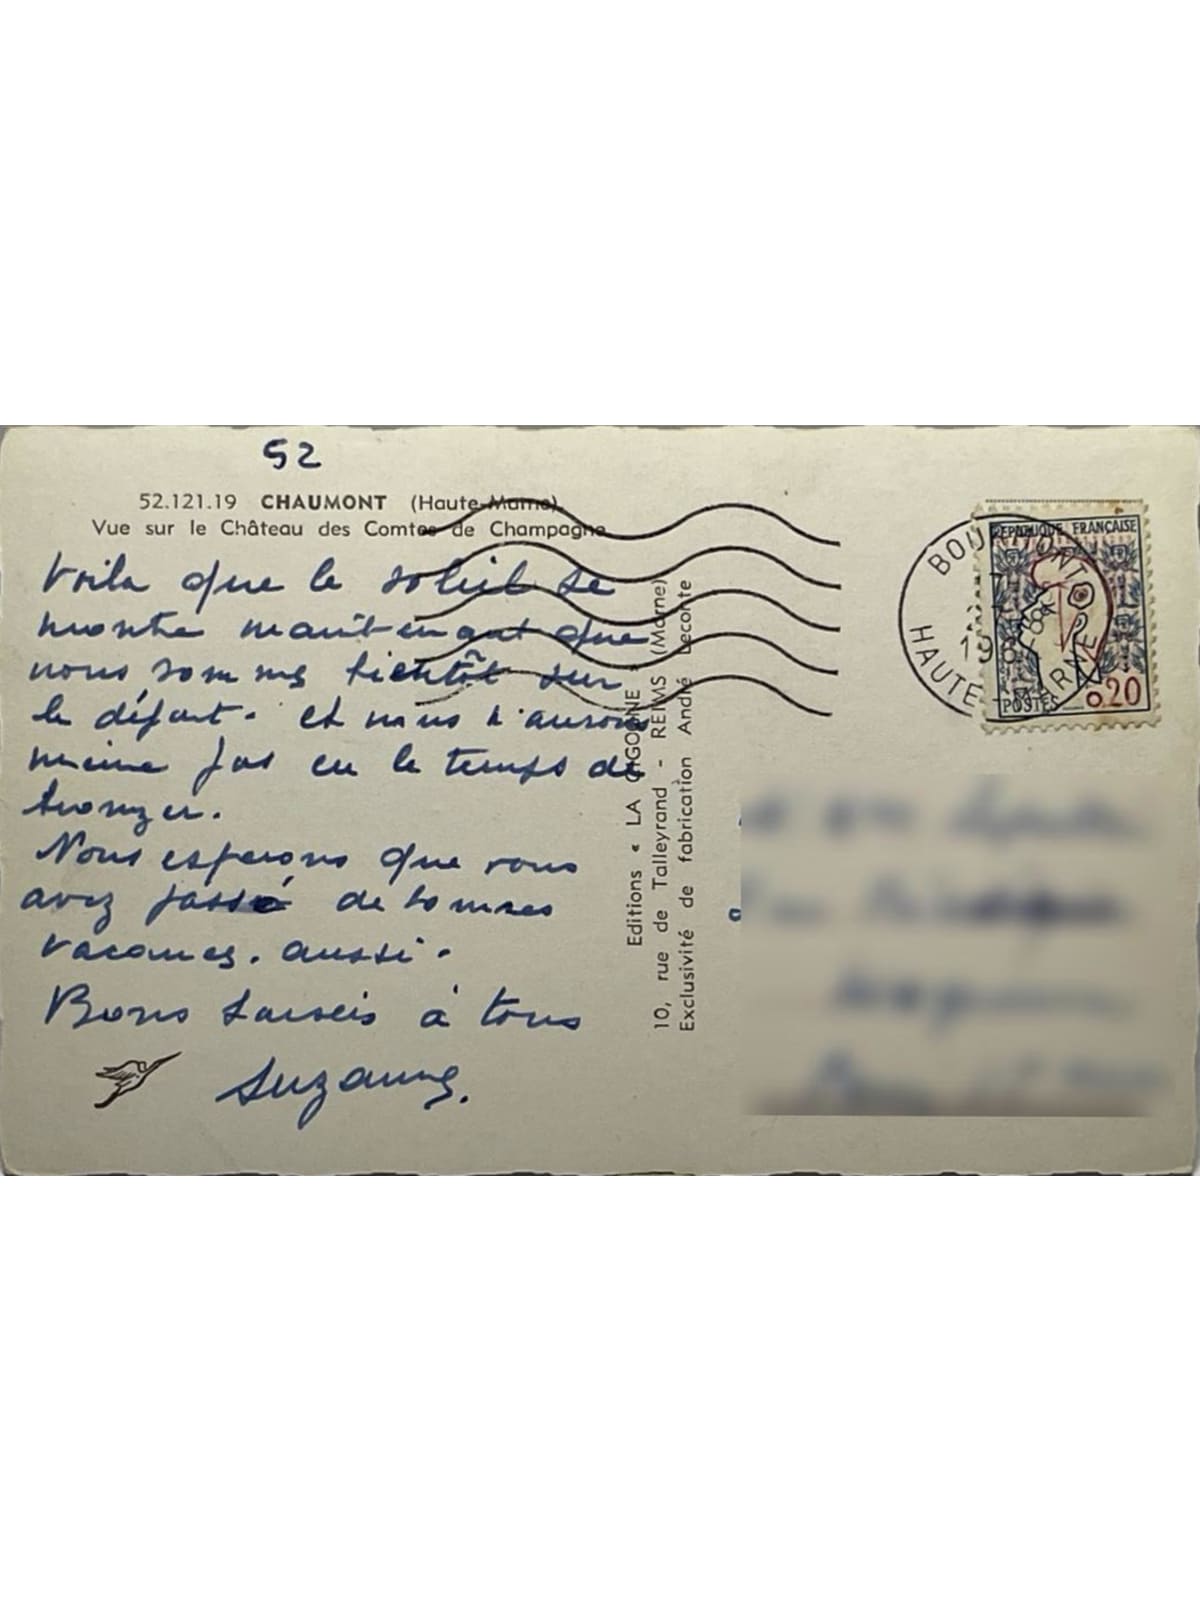 52
52.121.19 CHAUMONT (Haute-Marne)
Vue sur le Château des Comtes de Champagne
Voila que le soleil se
montre maintenant que
nous sommes bientôt sur
le départ. et nous n'aurons
même pas eu le temps de
bronzer.
Nous esperons que vous
avez passé de bonnes
vacances. aussi.
Bons baisers à tous
Suzanne.
Editions « LA CIGOGNE »
10, rue de Talleyrand - REIMS (Marne)
Exclusivité de fabrication André Leconte
REPUBLIQUE FRANÇAISE
POSTES 0,20
HAUTE MARNE